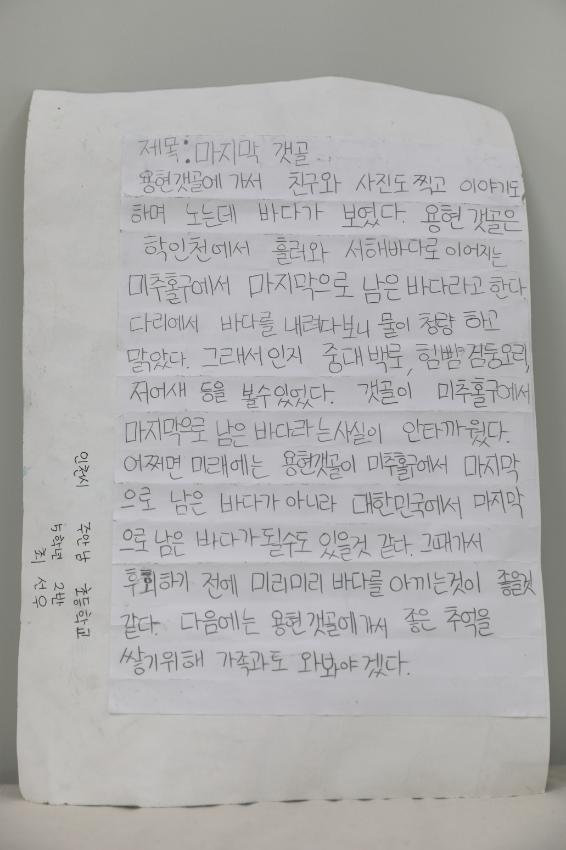 제목:마지막 갯골
용현갯골에 가서 친구와 사진도 찍고 이야기도
하며 노는데 바다가 보였다. 용현 갯골은
학인천에서 흘러와 서해바다로 이어지는
미추홀구에서 마지막으로 남은 바다라고 한다.
다리에서 바다를 내려다보니 물이 청량 하고
맑았다. 그래서인지 중대백로, 흰뺨검둥오리,
저어새 등을 볼수있었다. 갯골이 미추홀구에서
마지막으로 남은 바다라는사실이 안타까웠다.
어쩌면 미래에는 용현갯골이 미추홀구에서 마지막
으로 남은 바다가 아니라 대한민국에서 마지막
으로 남은 바다가 될수도 있을것 같다. 그때가서
후회하기 전에 미리미리 바다를 아끼는것이 좋을것
같다. 다음에는 용현갯골에가서 좋은 추억을
쌓기위해 가족과도 와봐야겠다.
인천시 주안남 초등학교
5학년 2반
최 선우